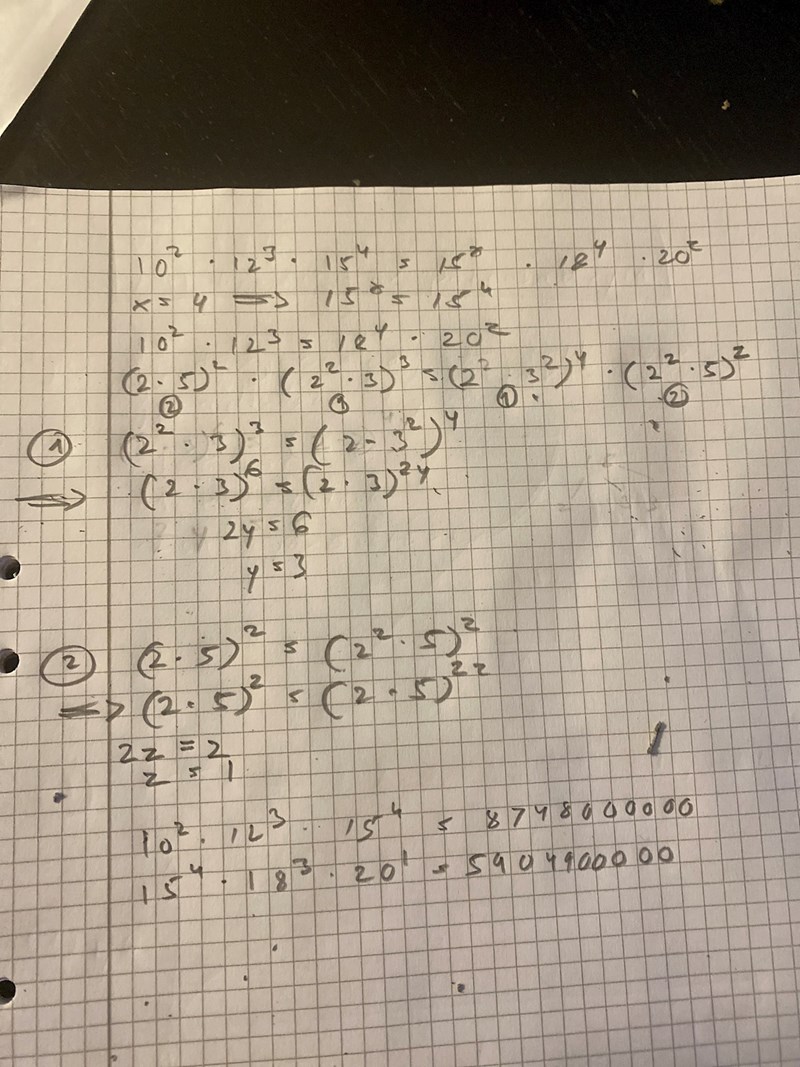 10² · 12³ · 15⁴ = 15ˣ · 18ʸ · 20ᶻ
x = 4 ⟹ 15ˣ = 15⁴
10² · 12³ = 18ʸ · 20ᶻ
(2 · 5)² · (2² · 3)³ = (2 · 3²)ʸ · (2² · 5)ᶻ
② ① ① ②
① (2² · 3)³ = (2 · 3²)ʸ
⟹ (2 · 3)⁶ = (2 · 3)²ʸ
2y = 6
y = 3
② (2 · 5)² = (2² · 5)ᶻ
⟹ (2 · 5)² = (2 · 5)²ᶻ
2z = 2
z = 1
10² · 12³ · 15⁴ = 8748000000
15⁴ · 18³ · 20¹ = 5904900000